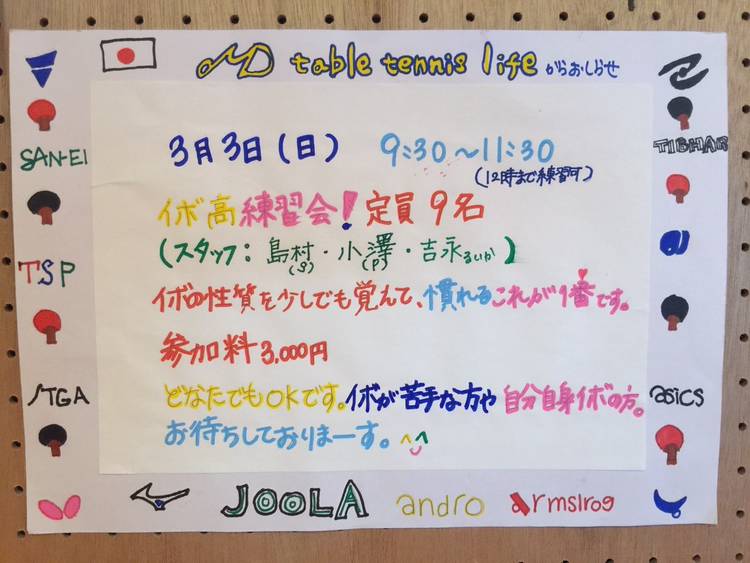 table tennis life からおしらせ
3月3日(日) 9:30～11:30
(12時まで練習可)
イボ高練習会!定員9名
(スタッフ:島村・小澤・吉永るいか)
(S) (P)
イボの性質を少しでも覚えて、慣れるこれが1番です。
参加料3,000円
どなたでもOKです。イボが苦手な方や自分自身イボの方。
お待ちしておりまーす。^^
SAN-EI
TSP
STGA
TIBHAR
asics
JOOLA
andro
armslrog